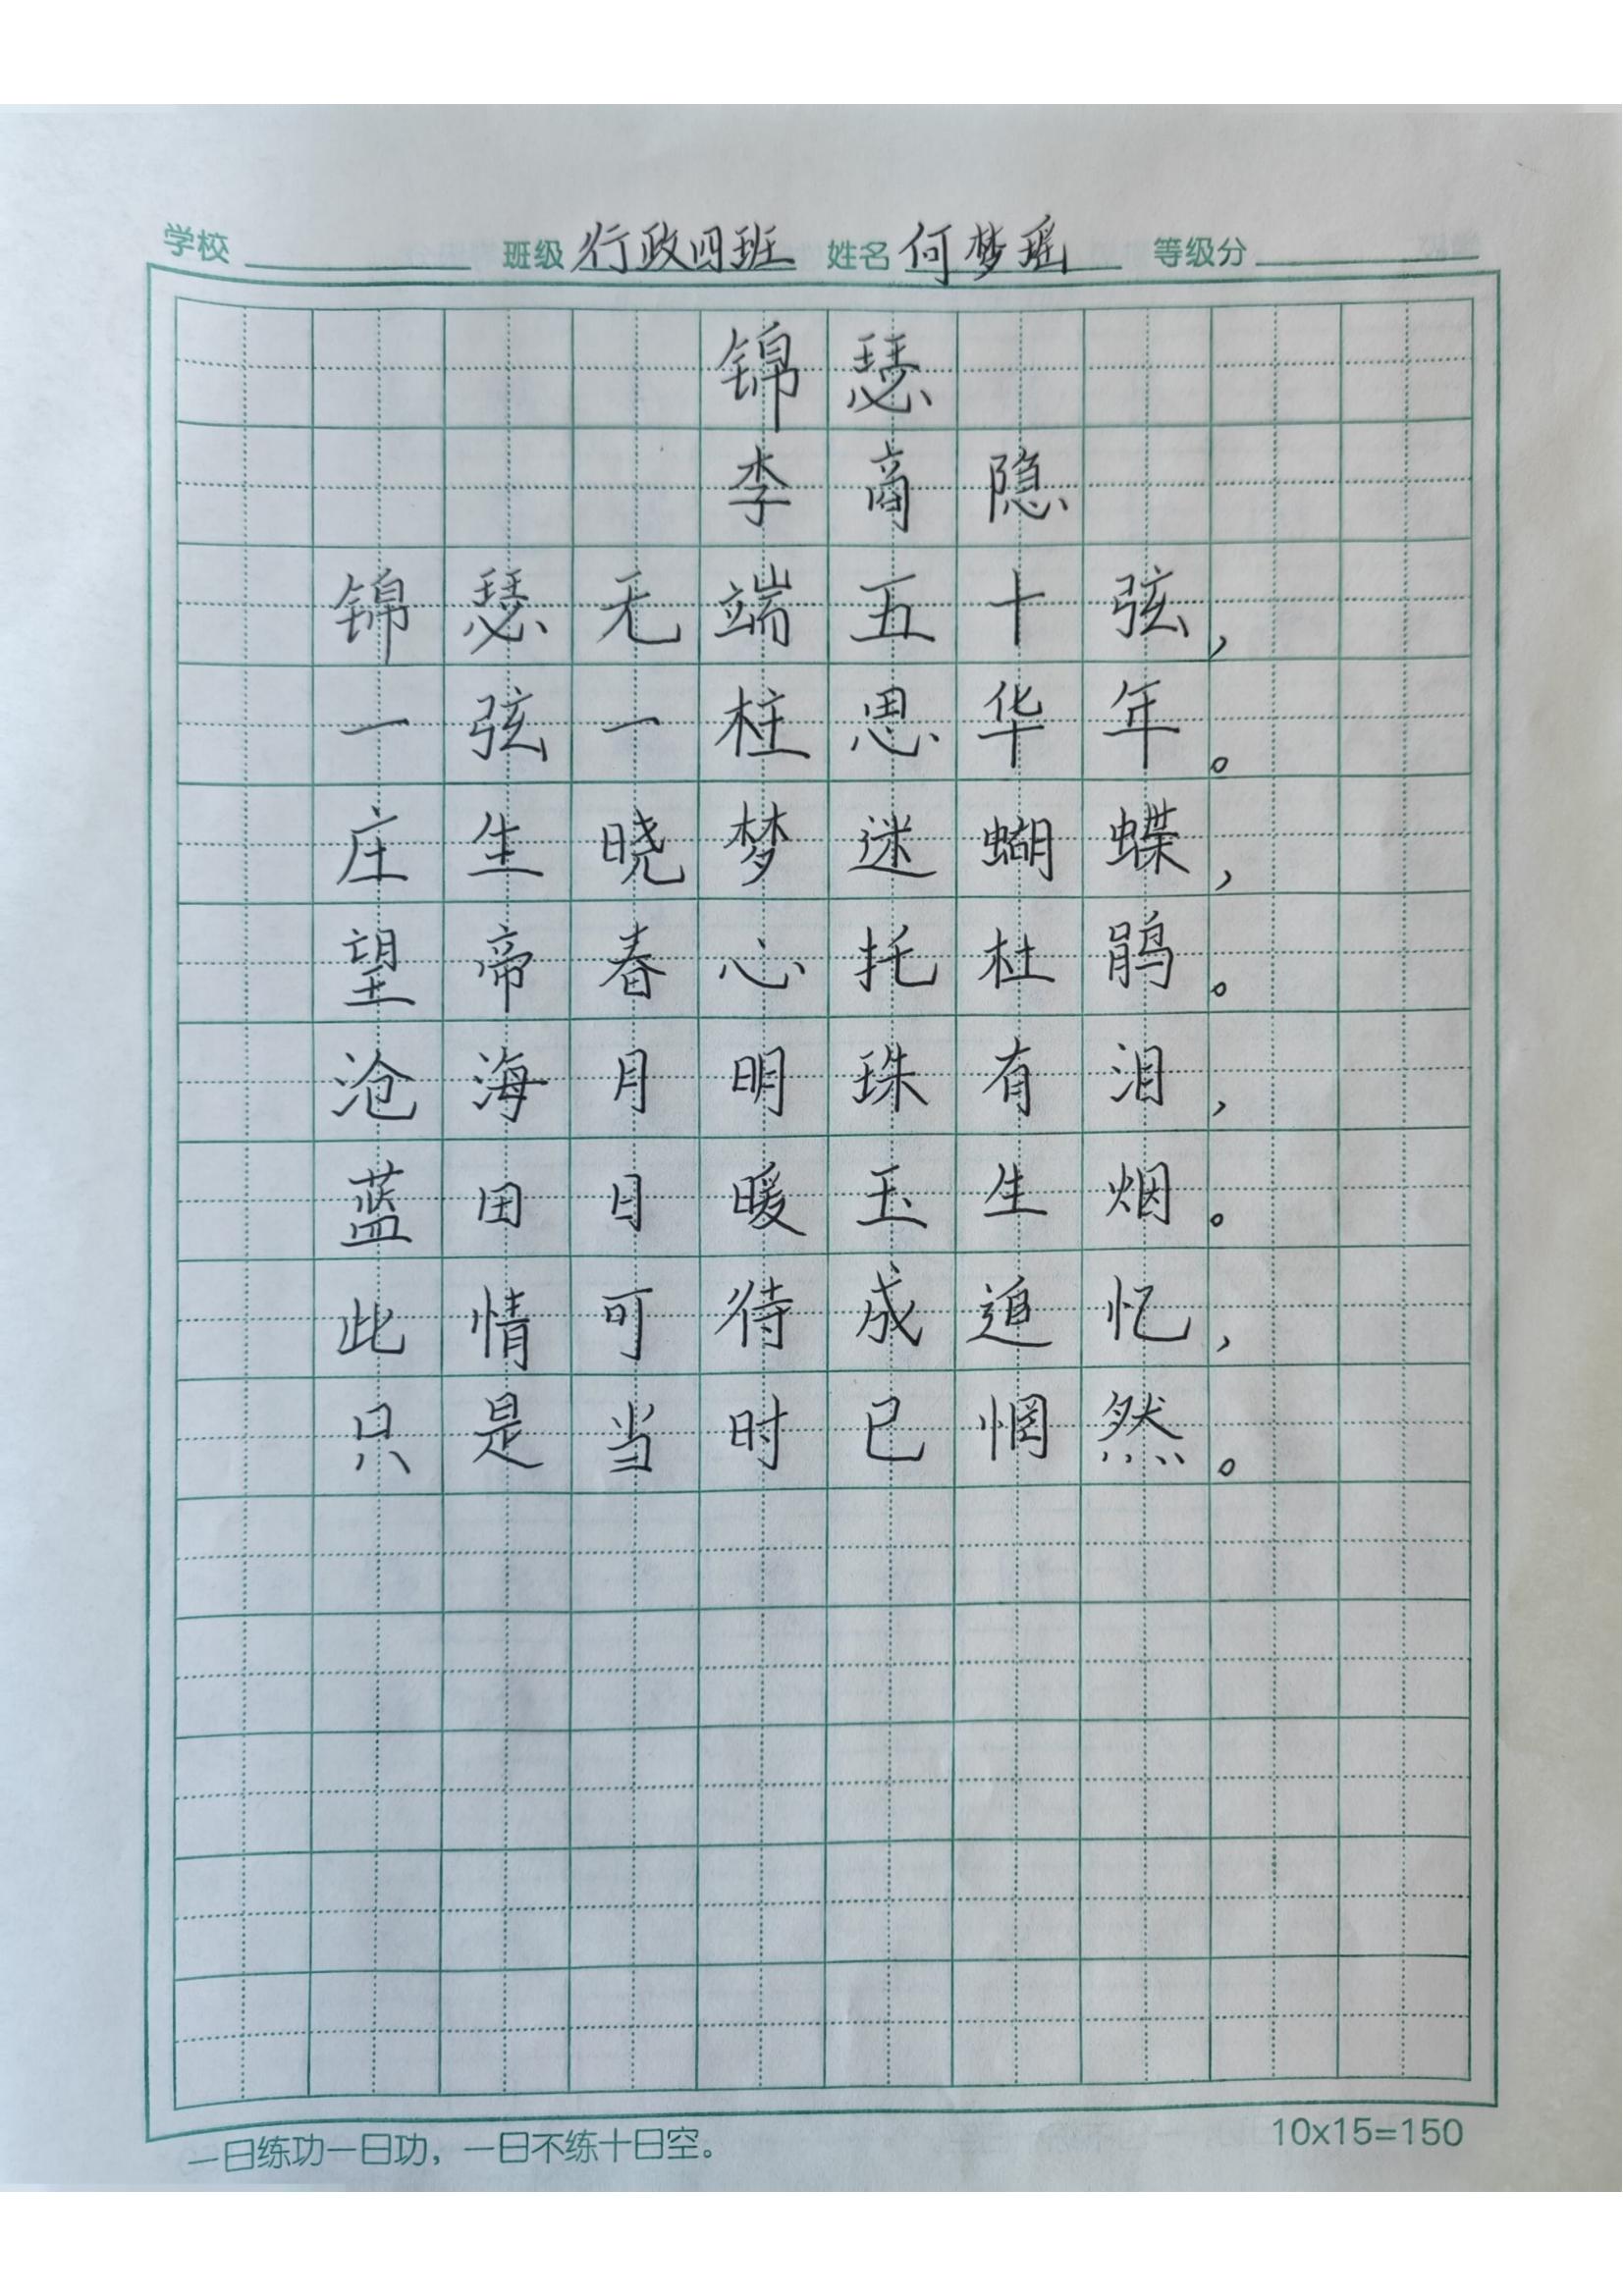 学校 班级 行政四班 姓名 何梦瑶 等级分
锦瑟
李商隐
锦瑟无端五十弦，
一弦一柱思华年。
庄生晓梦迷蝴蝶，
望帝春心托杜鹃。
沧海月明珠有泪，
蓝田日暖玉生烟。
此情可待成追忆，
只是当时已惘然。
一日练功一日功，一日不练十日空。 10x15=150